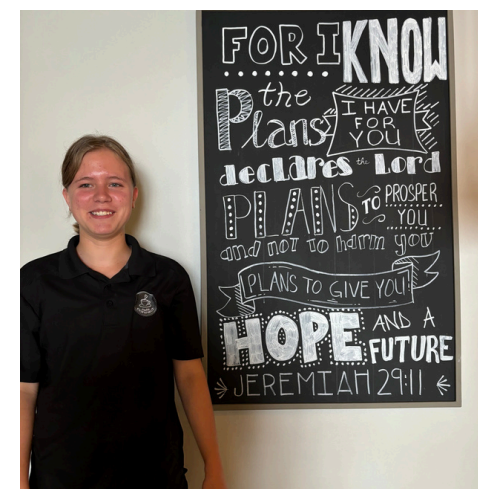 FOR I KNOW
the
Plans
I HAVE
FOR
YOU
declares the Lord
PLANS TO PROSPER
YOU
and not to harm you
PLANS TO GIVE YOU
HOPE AND A
FUTURE
JEREMIAH 29:11